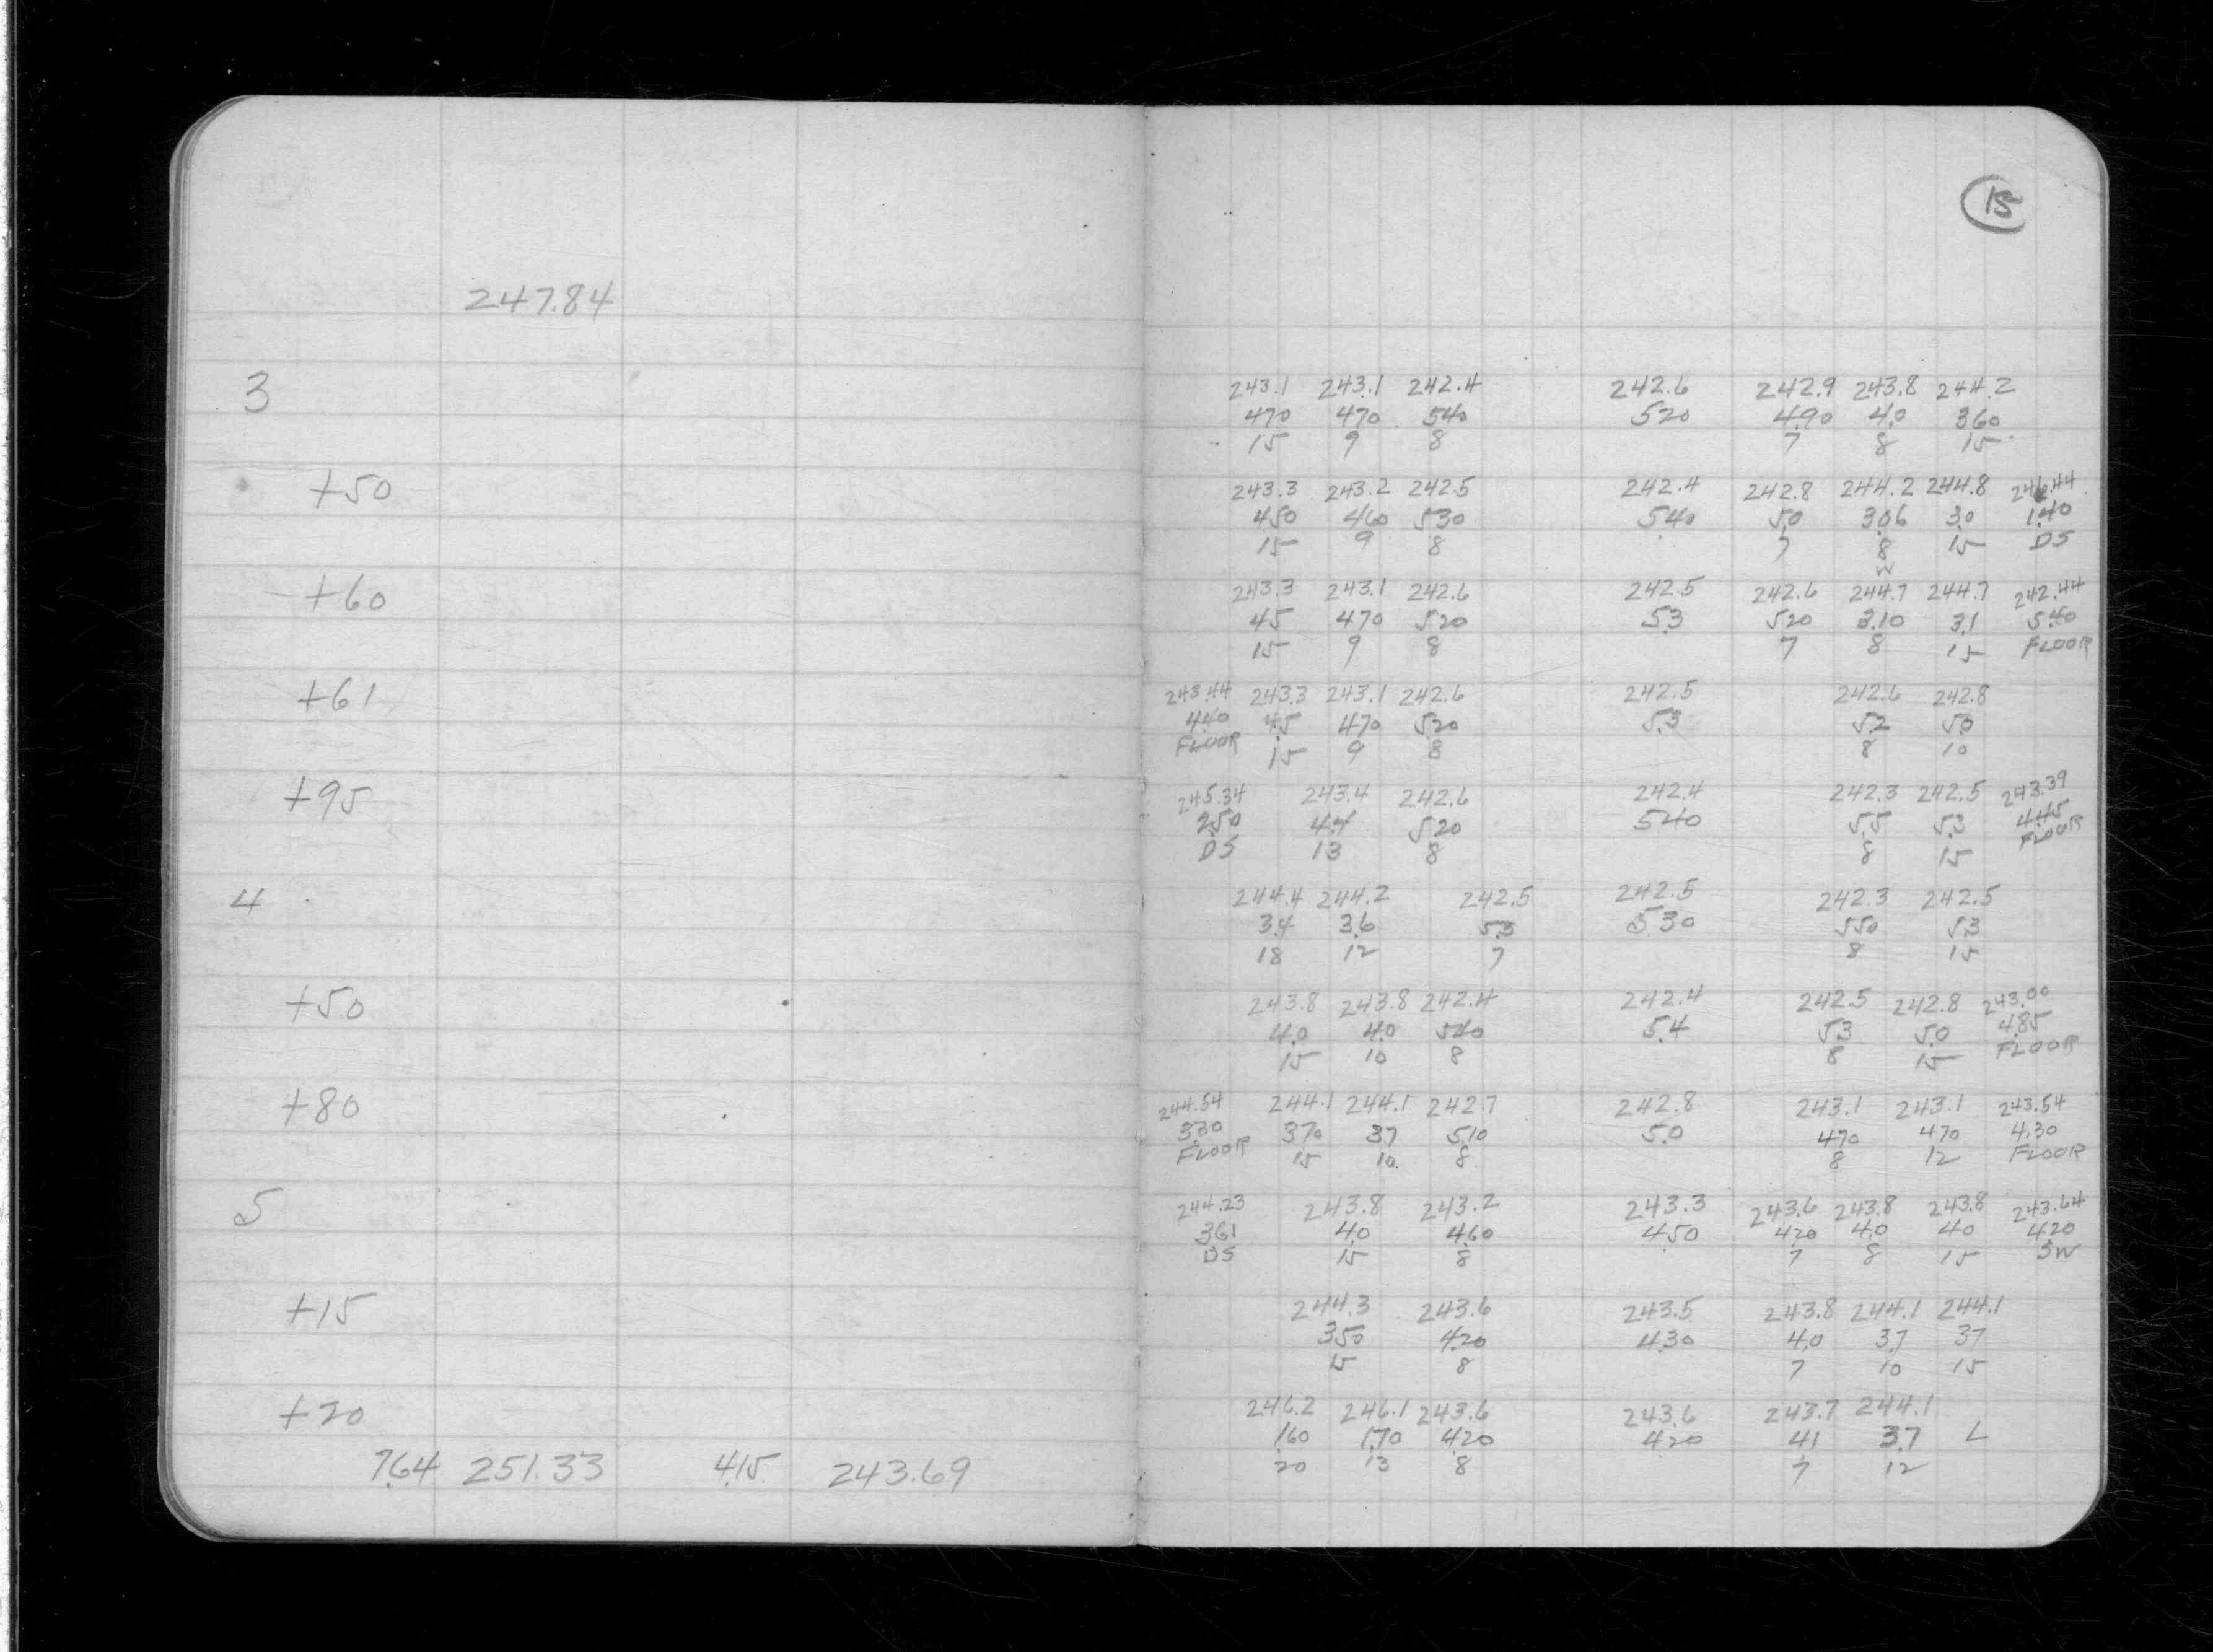 15
247.84
3 243.1 243.1 242.4 242.6 242.9 243.8 244.2
470 470 540 520 4.90 4.0 360
15 9 8 7 8 15
+50 243.3 243.2 242.5 242.4 242.8 244.2 244.8 246.44
450 460 530 540 5.0 306 3.0 1.40
15 9 8 7 8 15 DS
W
+60 243.3 243.1 242.6 242.5 242.6 244.7 244.7 242.44
45 470 520 5.3 520 3.10 3.1 5.40
15 9 8 7 8 15 FLOOR
+61 243.44 243.3 243.1 242.6 242.5 242.6 242.8
4.40 4.5 470 520 5.3 5.2 5.0
FLOOR 15 9 8 8 10
+95 245.34 243.4 242.6 242.4 242.3 242.5 243.39
2.50 4.4 520 540 5.5 5.3 4.45
DS 13 8 8 15 FLOOR
4 244.4 244.2 242.5 242.5 242.3 242.5
3.4 3.6 5.3 530 550 5.3
18 12 7 8 15
+50 243.8 243.8 242.4 242.4 242.5 242.8 243.00
4.0 4.0 540 5.4 5.3 5.0 4.85
15 10 8 8 15 FLOOR
+80 244.54 244.1 244.1 242.7 242.8 243.1 243.1 243.54
3.30 370 3.7 5.10 5.0 470 470 4.30
FLOOR 15 10 8 8 12 FLOOR
5 244.23 243.8 243.2 243.3 243.6 243.8 243.8 243.64
361 4.0 4.60 450 420 4.0 40 4.20
DS 15 8 7 8 15 SW
+15 244.3 243.6 243.5 243.8 244.1 244.1
350 420 430 4.0 3.7 37
15 8 7 10 15
+20 246.2 246.1 243.6 243.6 243.7 244.1
1.60 1.70 4.20 420 41 3.7 L
20 13 8 7 12
7.64 251.33 4.15 243.69